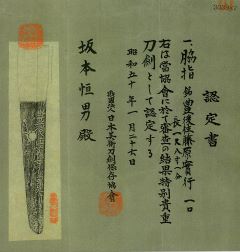 認定書
一、脇指 銘 豊後住藤原實行 一口
長一尺八寸一分
右は當協會に於て審査の結果特別貴重
刀剣として認定する
昭和五十年一月二十六日
財団法人日本美術刀剣保存協會
坂本恒男殿